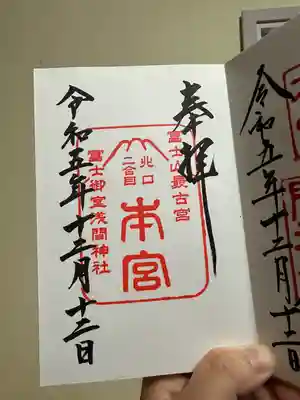 奉拝
富士山最古宮
北口
二合目
本宮
冨士御室浅間神社
令和五年十二月十二日
令和五年十二月十二日